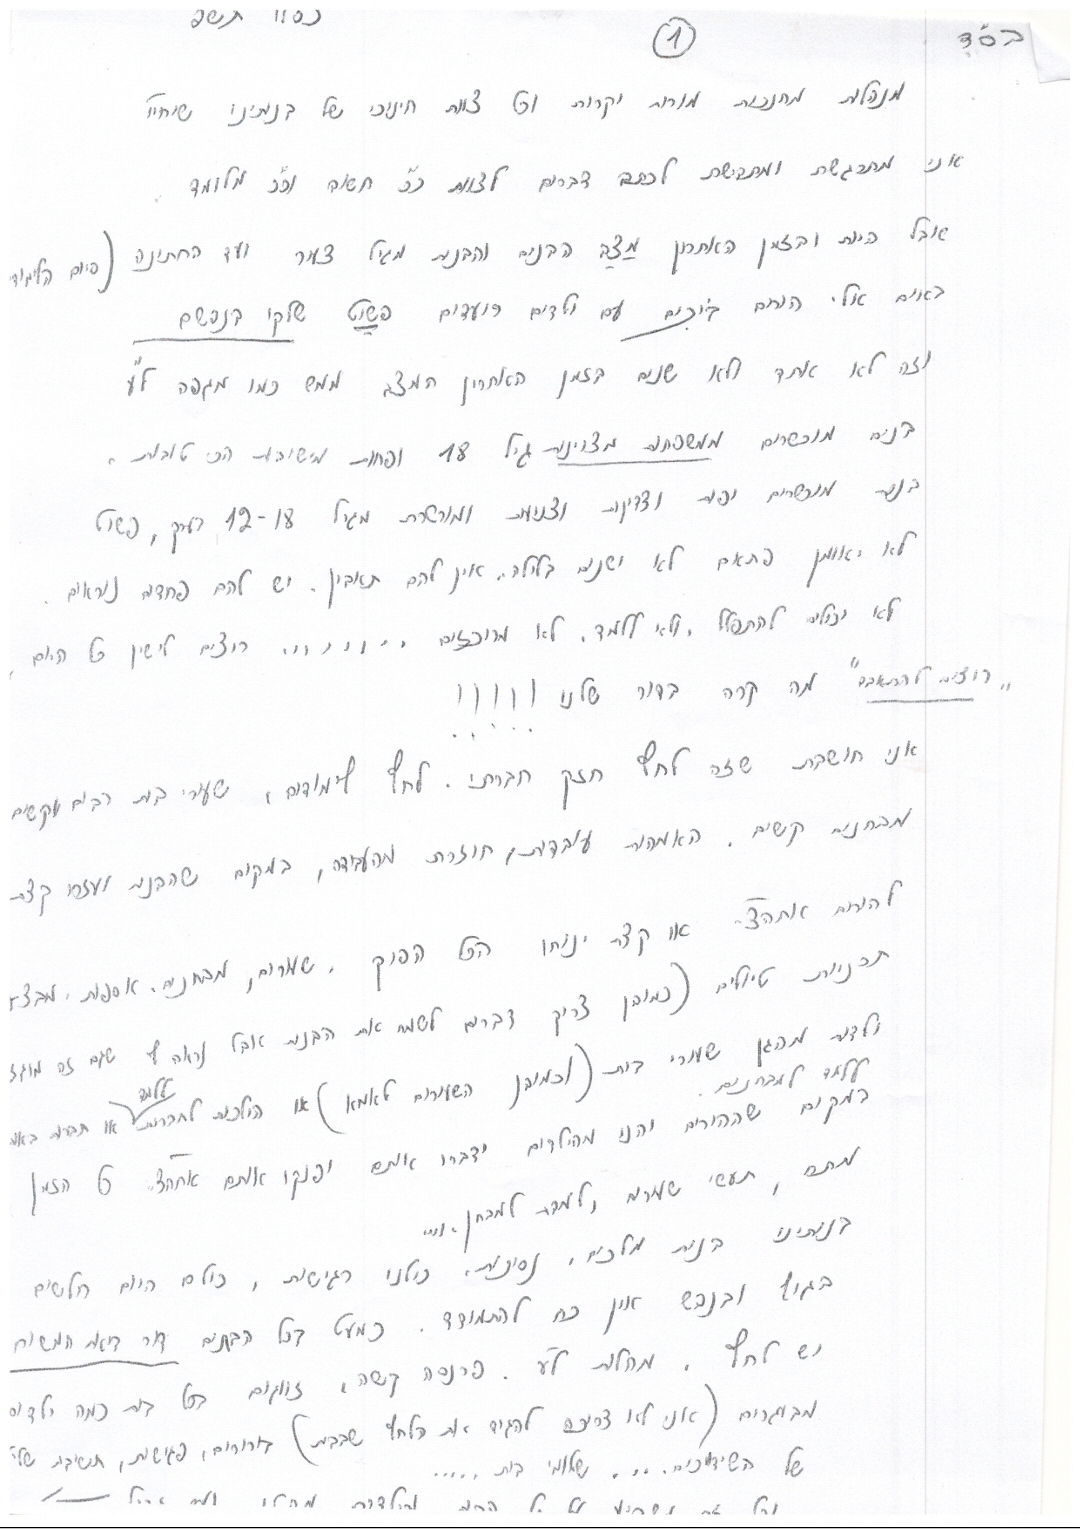 כסלו תשפ
בס"ד
1
מנהלות מחנכות מורות יקרות וכל צוות חינוכי של בנותינו שיחיו
אני מתרגשת ומתביישת לכתוב דברים לצוות כ"כ חשוב וכ"כ מלומד.
אבל היות ובזמן האחרון מצב הבנים והבנות מגיל צעיר ועד החתונה (היום הלימוד
באים אלי הורים בוכים עם ילדים רועדים פשוט שלקו בנפשם
וזה לא אחד ולא שנים בזמן האחרון המצב ממש כמו מגפה ל"ע
בנים מוכשרים ממשפחות מצוינות גיל 18 ופחות מישיבות הכי טובות.
בנות מוכשרים יפות וצדיקות וצנועות ומוכשרות מגיל 12-18 בערך, פשוט
לא יאומן פתאם לא ישנים בלילה. אין להם תאבון. יש להם פחדים נוראים.
לא יכולים להתפלל, ולא ללמוד. לא מרוכזים ....... רוצים לישון כל היום,
"רוצים להתאבד" מה קרה בדור שלנו !!!!!
אני חושבת שזה לחץ חזק חברתי. לחץ לימודים, שעורי בית רבים וקשים
מבחנים קשים. האמהות עובדות, חוזרת מהעבודה, במקום שהבנות יעזרו קצת
להורים אחה"צ או קצת ינוחו הכל הפוך. שעורים, מבחנים, אסיפות, מבצ
תכניות טיולים (כמובן צריך דברים לשמח את הבנות אבל נראה לי שגם זה מוגז
ילדות מהגן שעורי בית (וכמובן השעורים לאמא) או הולכות לחברות ללמוד או חברות באו
ללמוד למבחנים.
במקום שההורים יהנו מהילדים ידברו אתם ויפנקו אותם אחה"צ. כל הזמן
מתח, תעשי שעורים, למדת למבחן. ו...
בנותינו בנות מלכים, נסיכות. כולנו רגישות, כולם היום חלשים
בגוף ובנפש אין כח להתמודד. כמעט בכל הבתים דור ביאת המשיח
יש לחץ. מחלות ל"ע. פרנסה קשה, זווגים בכל בית כמה ילדים
מבוגרים (אני לא צריכה להגיד את הלחץ שבבית) בירורים, פגישות, תשובות של
של השידוכים.... שלום בית .....
וכל זה משפיע על כל הבית והילדות